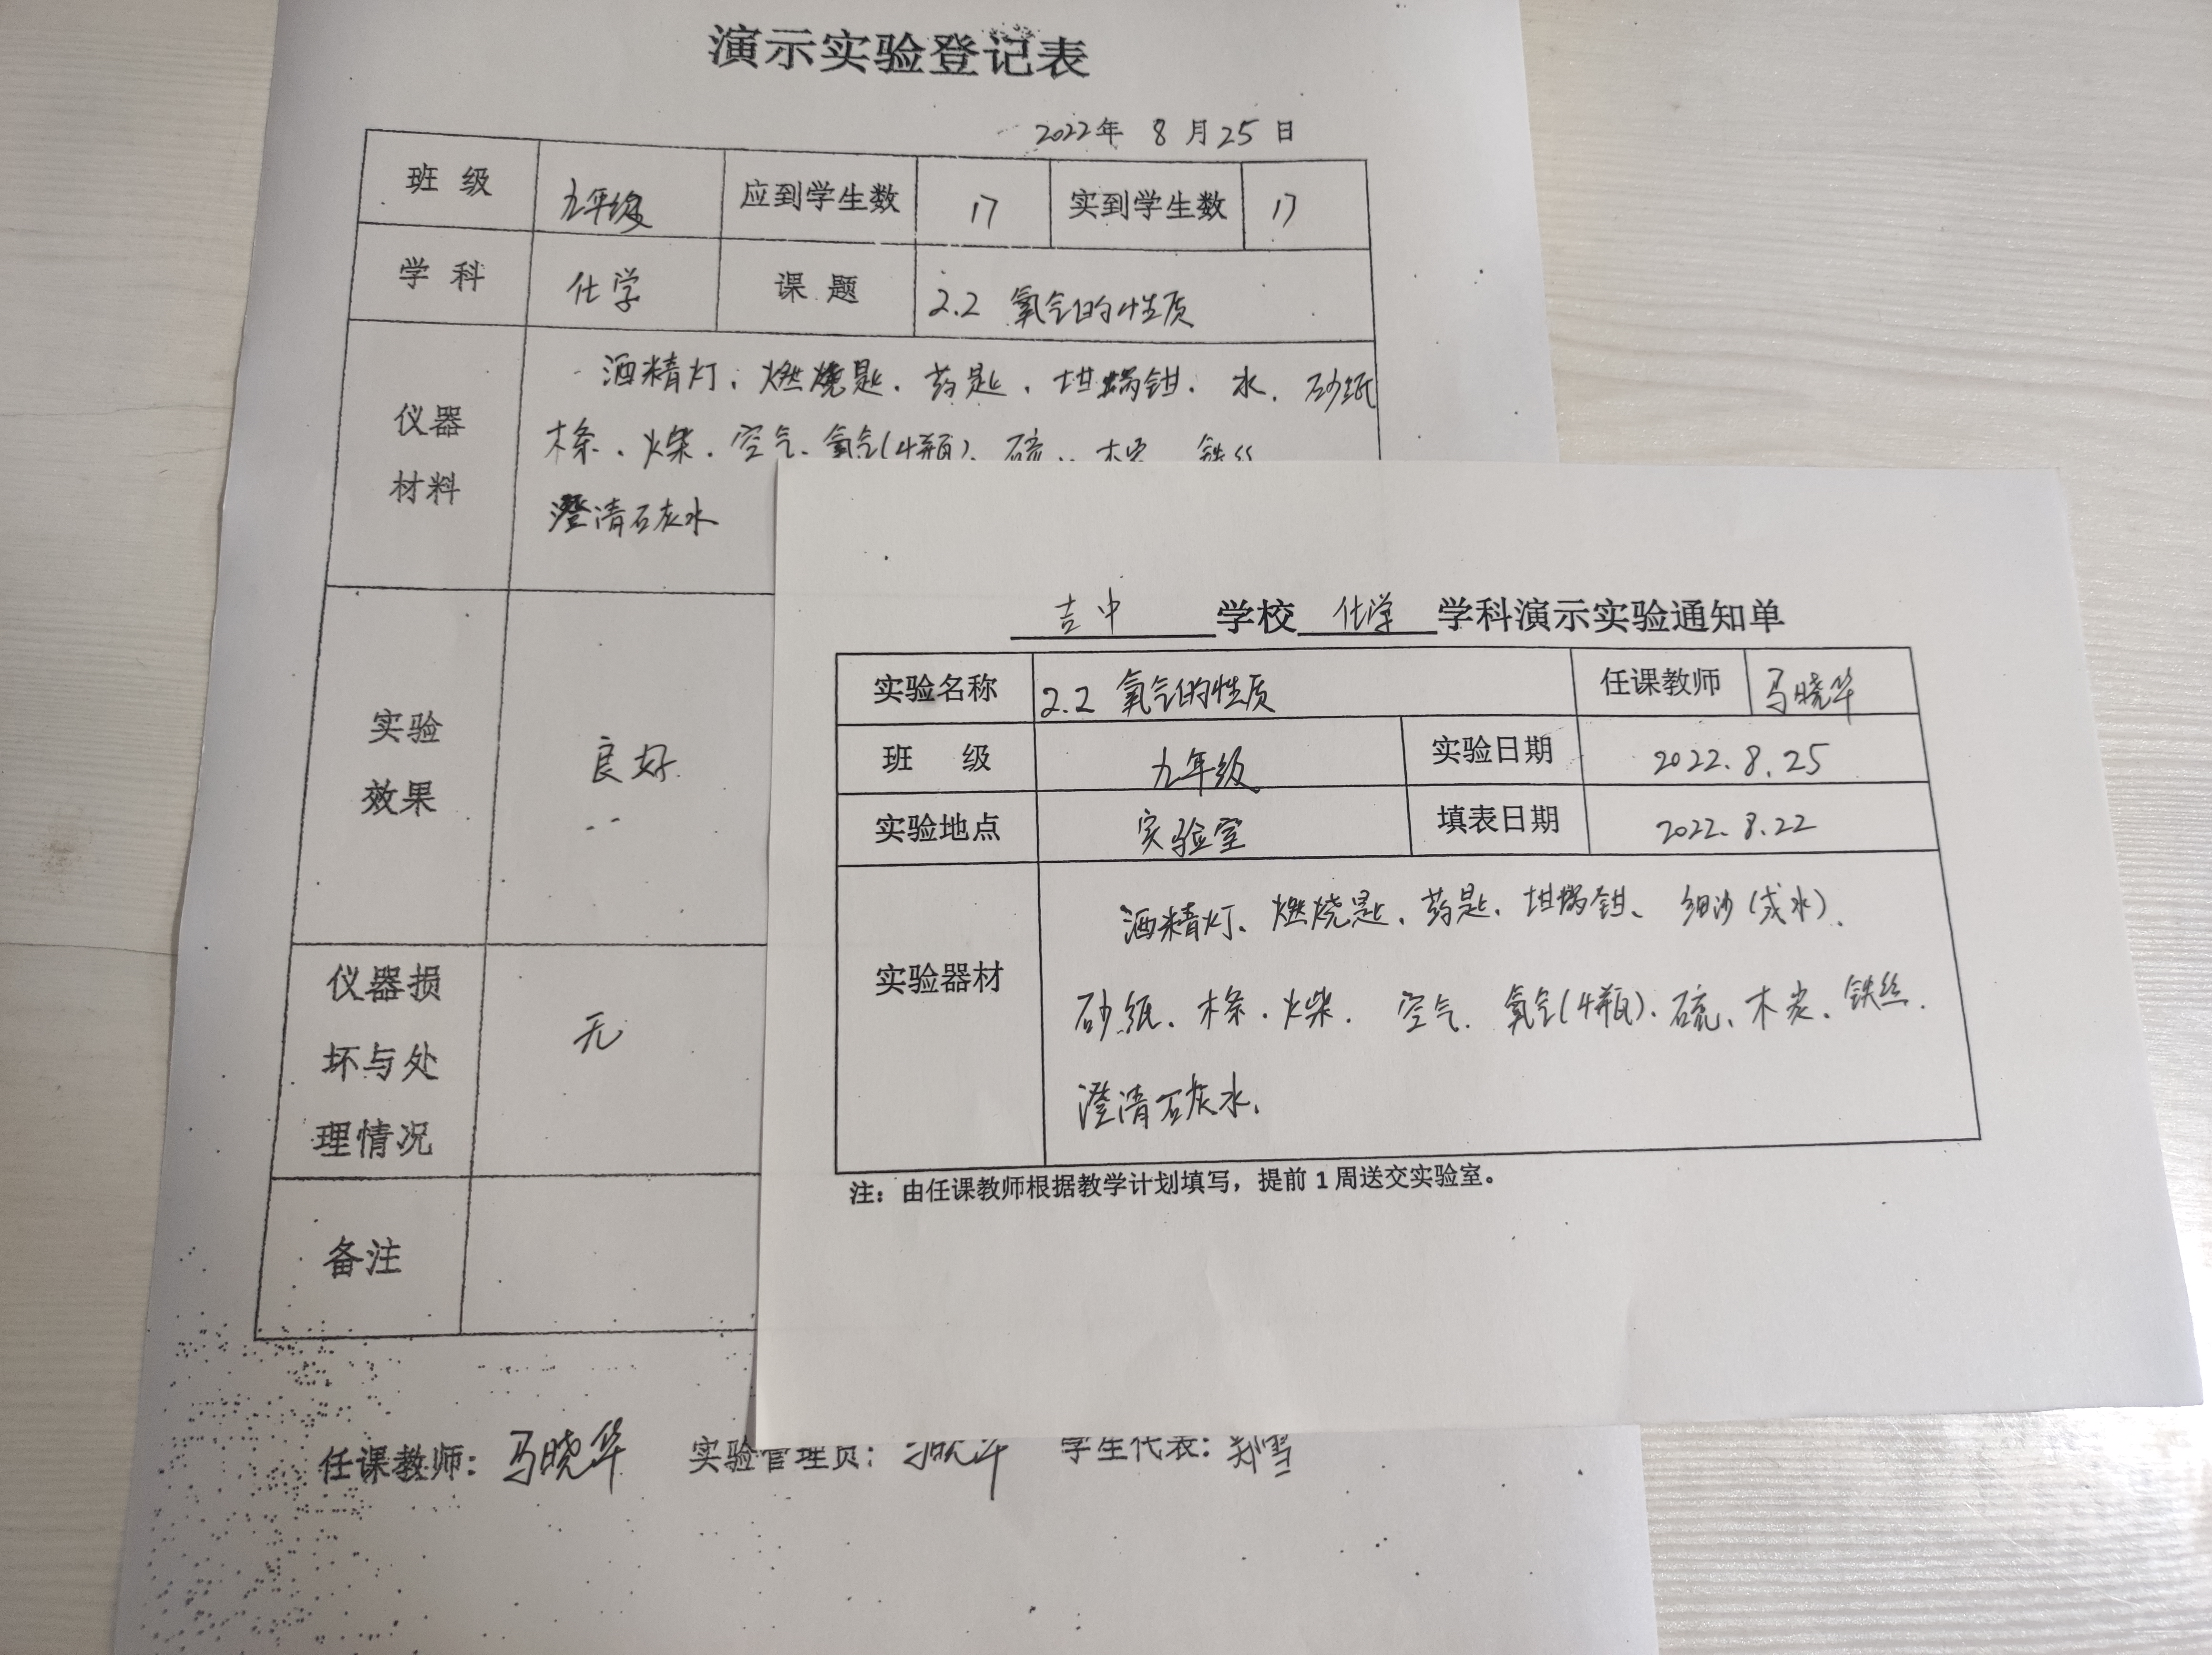 演示实验登记表
2022年 8 月 25 日
班 级 九年级 应到学生数 17 实到学生数 17
学 科 化学 课 题 2.2 氧气的性质
仪器
材料
酒精灯、燃烧匙、药匙、坩埚钳、水、砂纸
木条、火柴、空气、氧气(4瓶)、硫、木炭、铁丝
澄清石灰水
实验
效果
良好
仪器损
坏与处
理情况
无
备注
任课教师: 马晓华 实验管理员: 马晓华 学生代表: 郑雪
吉中 学校 化学 学科演示实验通知单
实验名称 2.2 氧气的性质 任课教师 马晓华
班 级 九年级 实验日期 2022.8.25
实验地点 实验室 填表日期 2022.8.22
实验器材
酒精灯、燃烧匙、药匙、坩埚钳、细沙(或水)、
砂纸、木条、火柴、空气、氧气(4瓶)、硫、木炭、铁丝、
澄清石灰水、
注：由任课教师根据教学计划填写，提前 1 周送交实验室。